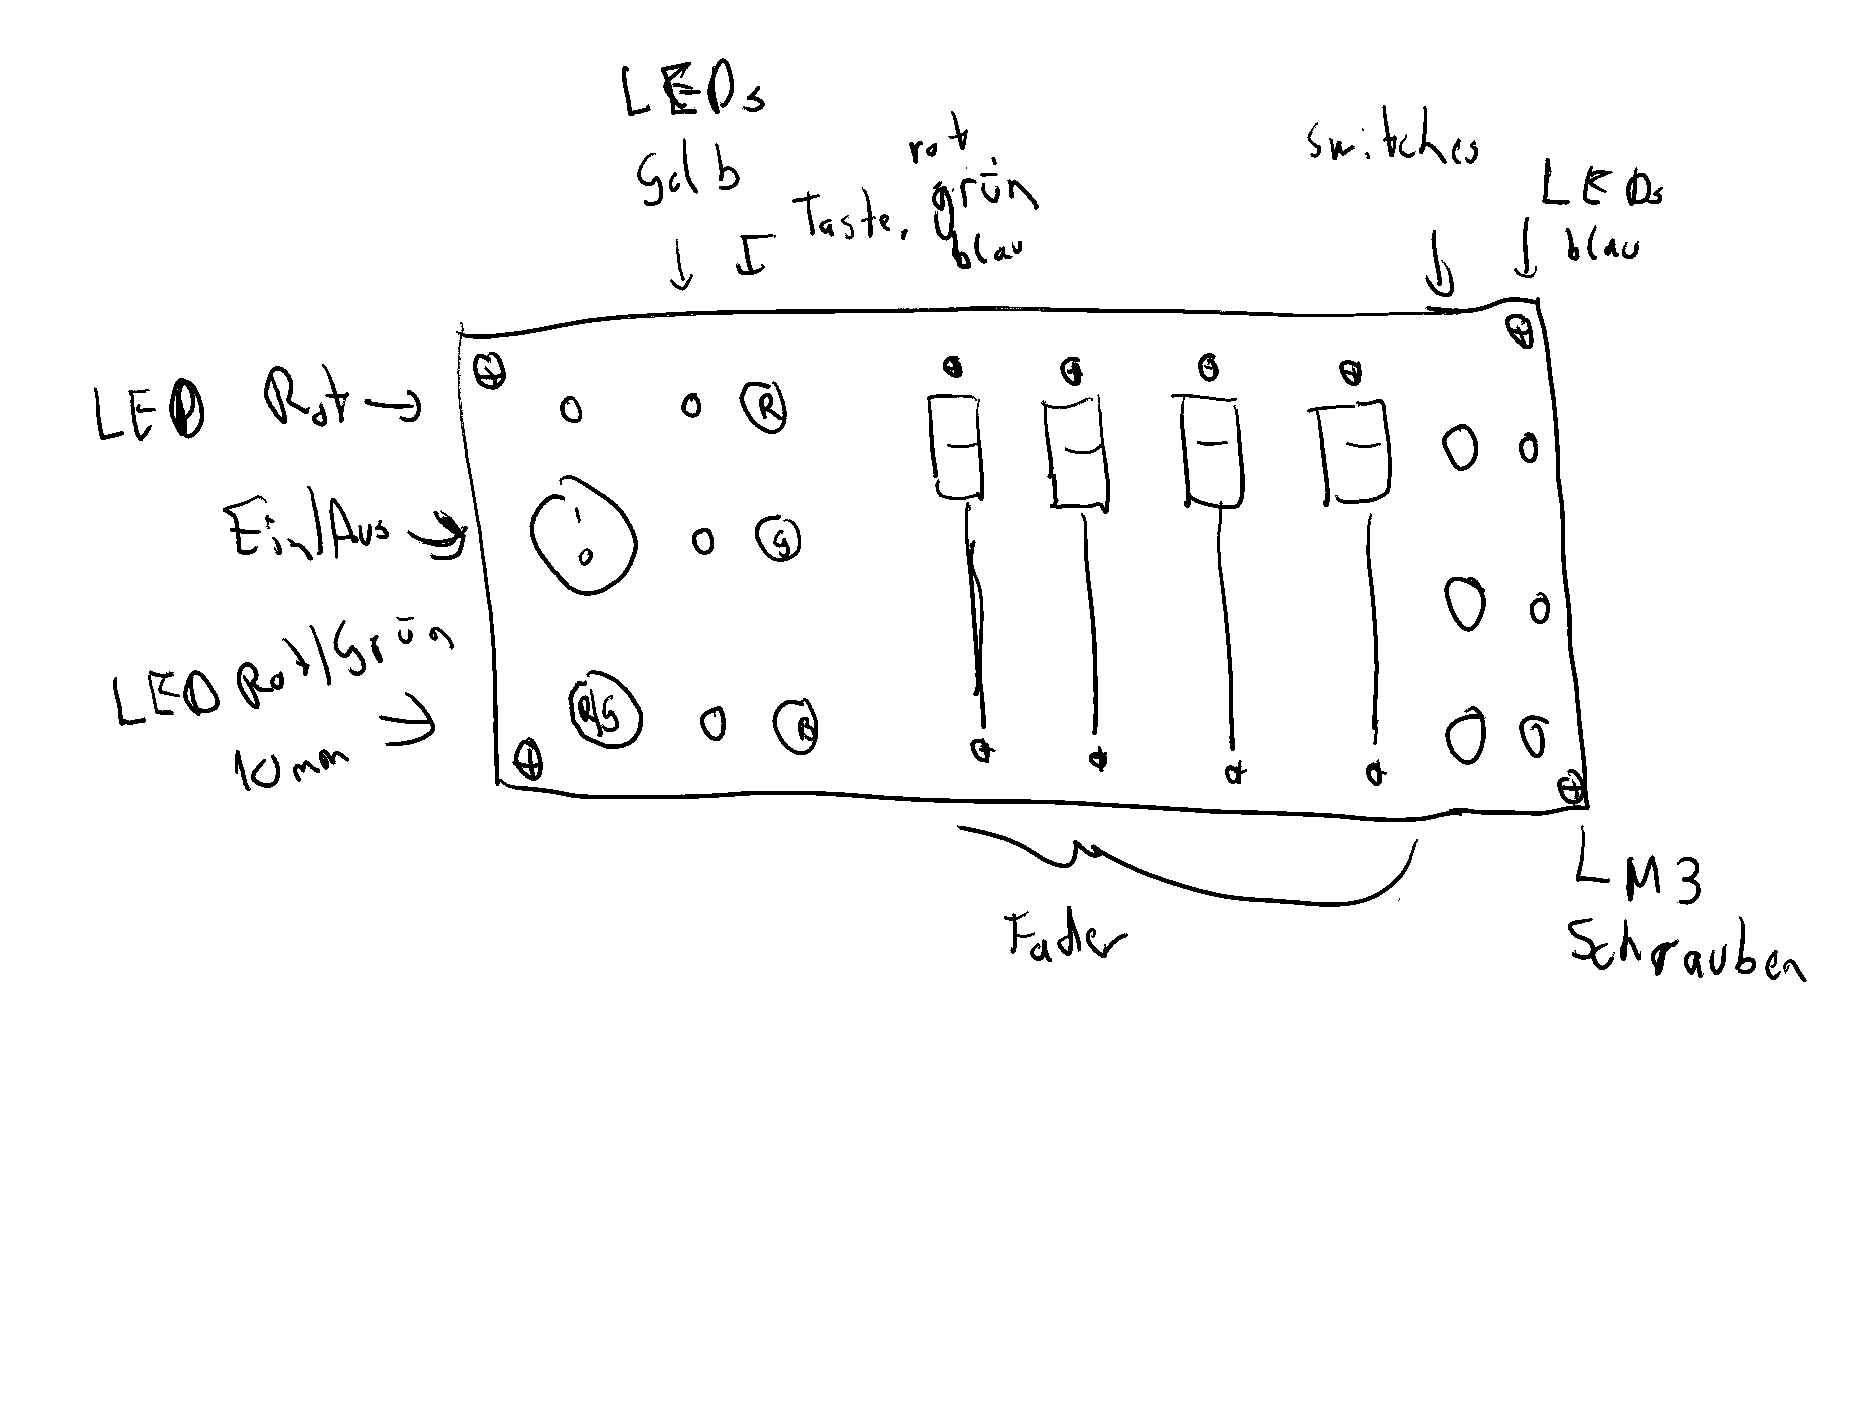 LEDs
Gelb
rot
Taster grün
blau
switches
LEDs
blau
LED Rot
R
Ein/Aus
I
O
G
LED Rot/Grün
10mm
R/G
Fader
M3
Schrauben